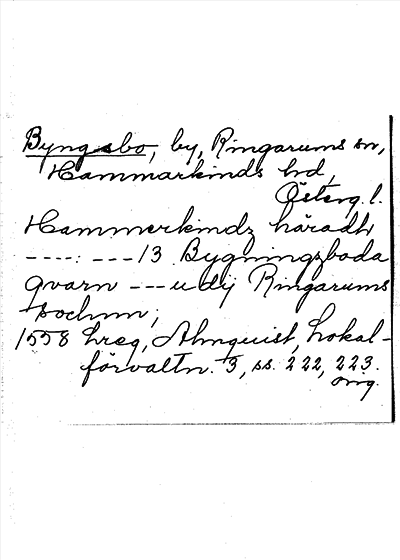 Byngsbo, by, Ringarums sn,
Hammarkinds hrd,
Österg. l.
Hammerkindz häradh
----: --- 13 Bygningzboda
qvarn --- udij Ringarums
sochnn;
1558 hreg, Almquist, Lokal-
förvaltn. 3, ss. 222, 223.
orig.